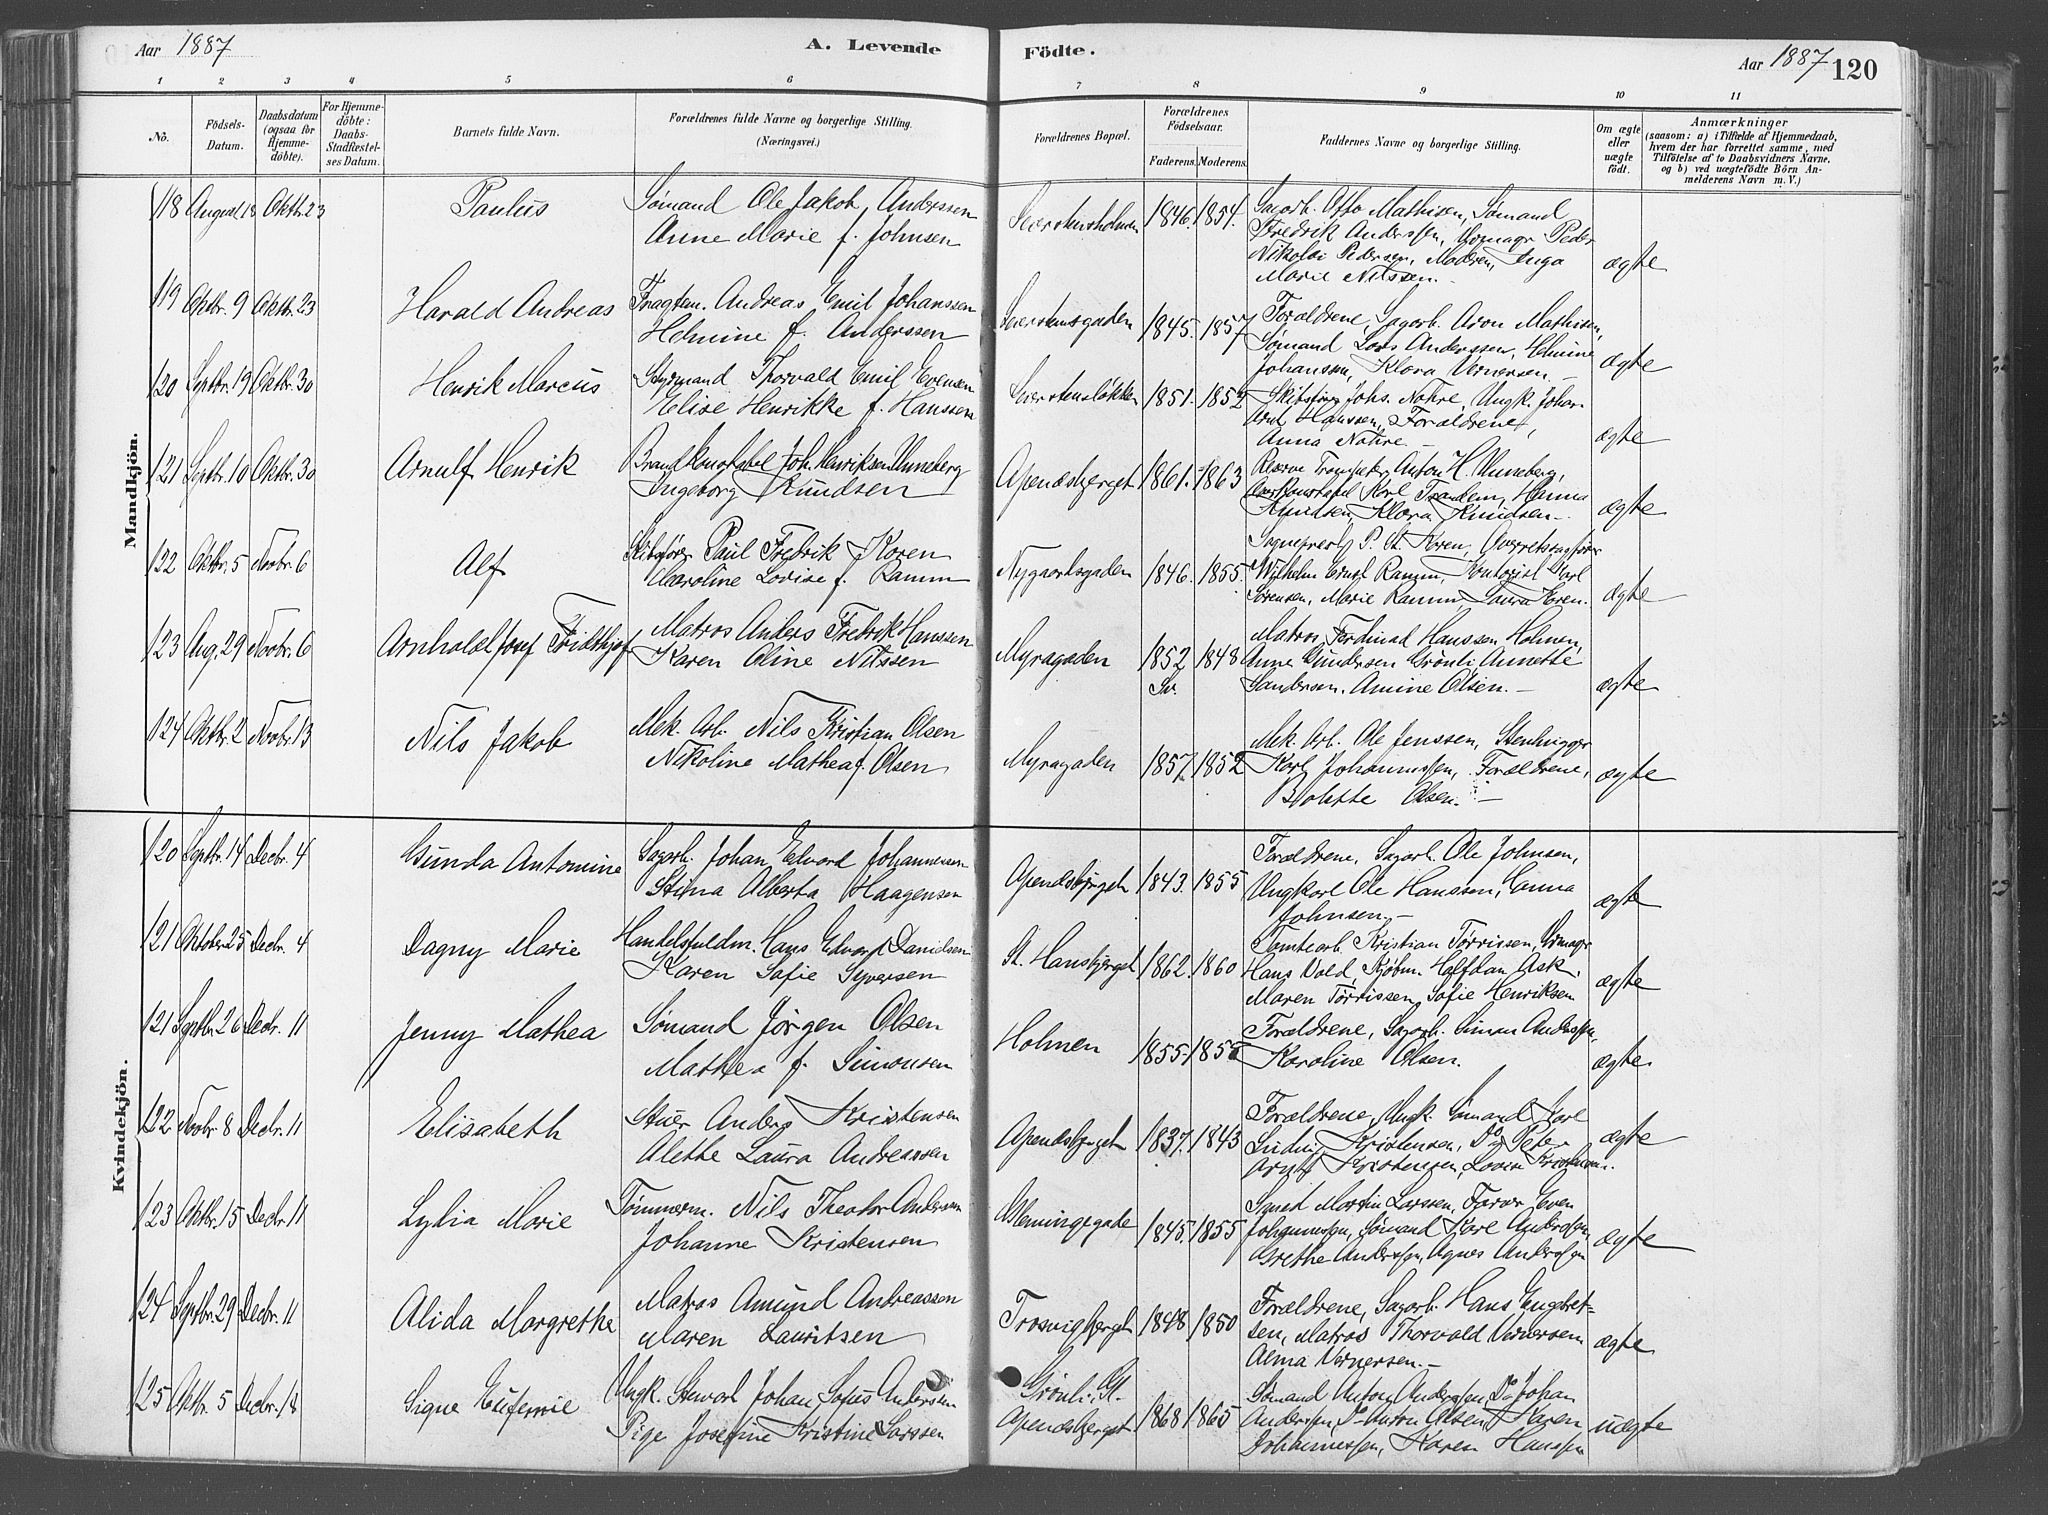 Aar 1887
A. Levende
Födte.
Aar 1887
120
1 2 3 4 5 6 7 8 9 10 11
No.
Födsels-
Datum.
Daabsdatum
(ogsaa for
Hjemme-
döbte).
For Hjemme-
döbte:
Daabs-
Stadfæstel-
ses Datum.
Barnets fulde Navn.
Forældrenes fulde Navne og borgerlige Stilling.
(Næringsvei.)
Forældrenes Bopæl.
Forældrenes
Födselsaar.
Faderens. Moderens.
Faddernes Navne og borgerlige Stilling.
Om ægte
eller
uægte
födt.
Anmærkninger
(saasom: a) i Tilfælde af Hjemmedaab,
hvem der har forrettet samme, med
Tilföielse af to Daabsvidners Navne,
og b) ved uægtefödte Börn An-
melderens Navn m. V.)
Mandkjön.
118 August 18 Oktb. 23 Paulus
Sømand Ole Jakob Anderssen
Anne Marie f. Johnsen
1846. 1854.
Sagarb. Otto Mathisen, Sømand
Fredrik Anderssen, Urmagr Peder
Nikolai Pedersen, Moderen, Inga
Marie Nilssen.
ægte
119 Oktbr. 9 Oktbr. 23 Harald Andreas
Fragtm. Andreas Emil Johanssen
Helmine f. Anderssen
Seierstensgaden 1845. 1857
Forældrene, Sagarb. Aron Mathisen,
Sømand Lars Anderssen, Helmine
Johansen, Klara Vernersen.
ægte
120 Septbr. 19 Oktbr. 30 Henrik Marcus
Styrmand Thorvald Emil Evensen
Elise Henrikke f. Hanssen
Seierstensløkken 1851. 1852
Skibsfører Johs. Nøhre, Ungk. Johan
Hanssen, Forældrene,
Anna Nøhre.
ægte
121 Septbr. 10 Oktbr. 30 Arnulf Henrik
Brandkonstabel Joh. Henriksen Unneberg
Ingeborg Knudsen
Apenæsbjerget 1861. 1863
Anton H. Unneberg,
Karl Hanna
Knudsen, Klara Knudsen.
ægte
122 Oktbr. 5 Novbr. 6 Alf
Skibsfører Paul Fredrik Koren
Caroline Lovise f. Ramm
Nygaardsgaden 1846. 1855.
Sogneprest P. St. Koren, Overretssagfører
Wilhelm Ernst Ramm, Kontorist Karl
Sørensen, Marie Ramm, Laura Koren.
ægte
123 Aug. 29 Novbr. 6 Arnhold Josef Fridthjof
Matros Anders Fredrik Hanssen
Karen Oline Nilssen
Myragaden 1852 1848
Sv.
Matros Ferdinad Hanssen Holmen,
Anne Gundersen Grønli, Annette
Sandersen, Amine Olsen.
ægte
124 Oktbr. 2 Novbr. 13 Nils Jakob
Mek. Arb. Nils Kristian Olsen
Nikoline Mathea f. Olsen
Myragaden 1857. 1852
Mek. Arb. Ole Jenssen, Stenhugger
Karl Johannessen, Forældrene,
Bolette Olsen.
ægte
Kvindekjön.
120 Septbr. 14 Decbr. 4 Gunda Antomine
Sagarb. Johan Edvard Johannesen
Stina Alberta Haagensen
Apenæsbjerget 1843. 1855
Forældrene, Sagarb. Ole Johnsen,
Ungkarl Ole Hanssen, Hanna
Johnsen.
ægte
121 Oktober 25 Decbr. 4 Dagny Marie
Handelsfuldm. Hans Edvard Danielsen
Karen Sofie Syversen
St. Hansbjerget 1862. 1860
Tomtearb. Kristian Tørrissen, Urmagr
Hans Vold, Kjøbm. Halfdan Ask,
Maren Tørrissen, Sofie Henriksen
ægte
121 Septbr. 26 Decbr. 11 Jenny Mathea
Sømand Jørgen Olsen
Mathea f. Simonsen
Holmen 1855.
Forældrene, Sagarb. Simon Anderssen,
Karoline Olsen.
ægte
122 Novbr. 8 Decbr. 11 Elisabeth
Stuer Anders Kristensen
Alethe Laura Andreassen
Apenæsbjerget 1837. 1843
Forældrene, Ungk. Sømand Karl
Ludvig Kristensen, Do Peter
Kristensen, Lovise Kristensen.
ægte
123 Oktbr. 15 Decbr. 11 Lydia Marie
Tømmerm. Nils Theodor Andersen
Johanne Kristensen
Glemmingegade 1845. 1855
Smed Martin Larssen, Farver Even
Johannessen, Sømand Karl Anderssen,
Grethe Anderssen, Agnes Anderssen
ægte
124 Septbr. 29 Decbr. 11 Alida Margrethe
Matros Amund Andreassen
Maren Lauritsen
Trosvigbjerget 1848 1850
Forældrene, Sagarb. Hans Engebret-
sen, Matros Thorvald Vernersen
Alma Vernersen.
ægte
125 Oktbr. 5 Decbr. 18 Signe Eufemie
Ungk. Steward Johan Sofus Andersen
Pige Josefine Kristine Larssen
Grønli. St.
Apenæsbjerget 1868 1865
Sømand Anton Anderssen, Do Johan
Anderssen, Do Anton Olsen, Karen
Johannessen, Karen Hanssen
uægte